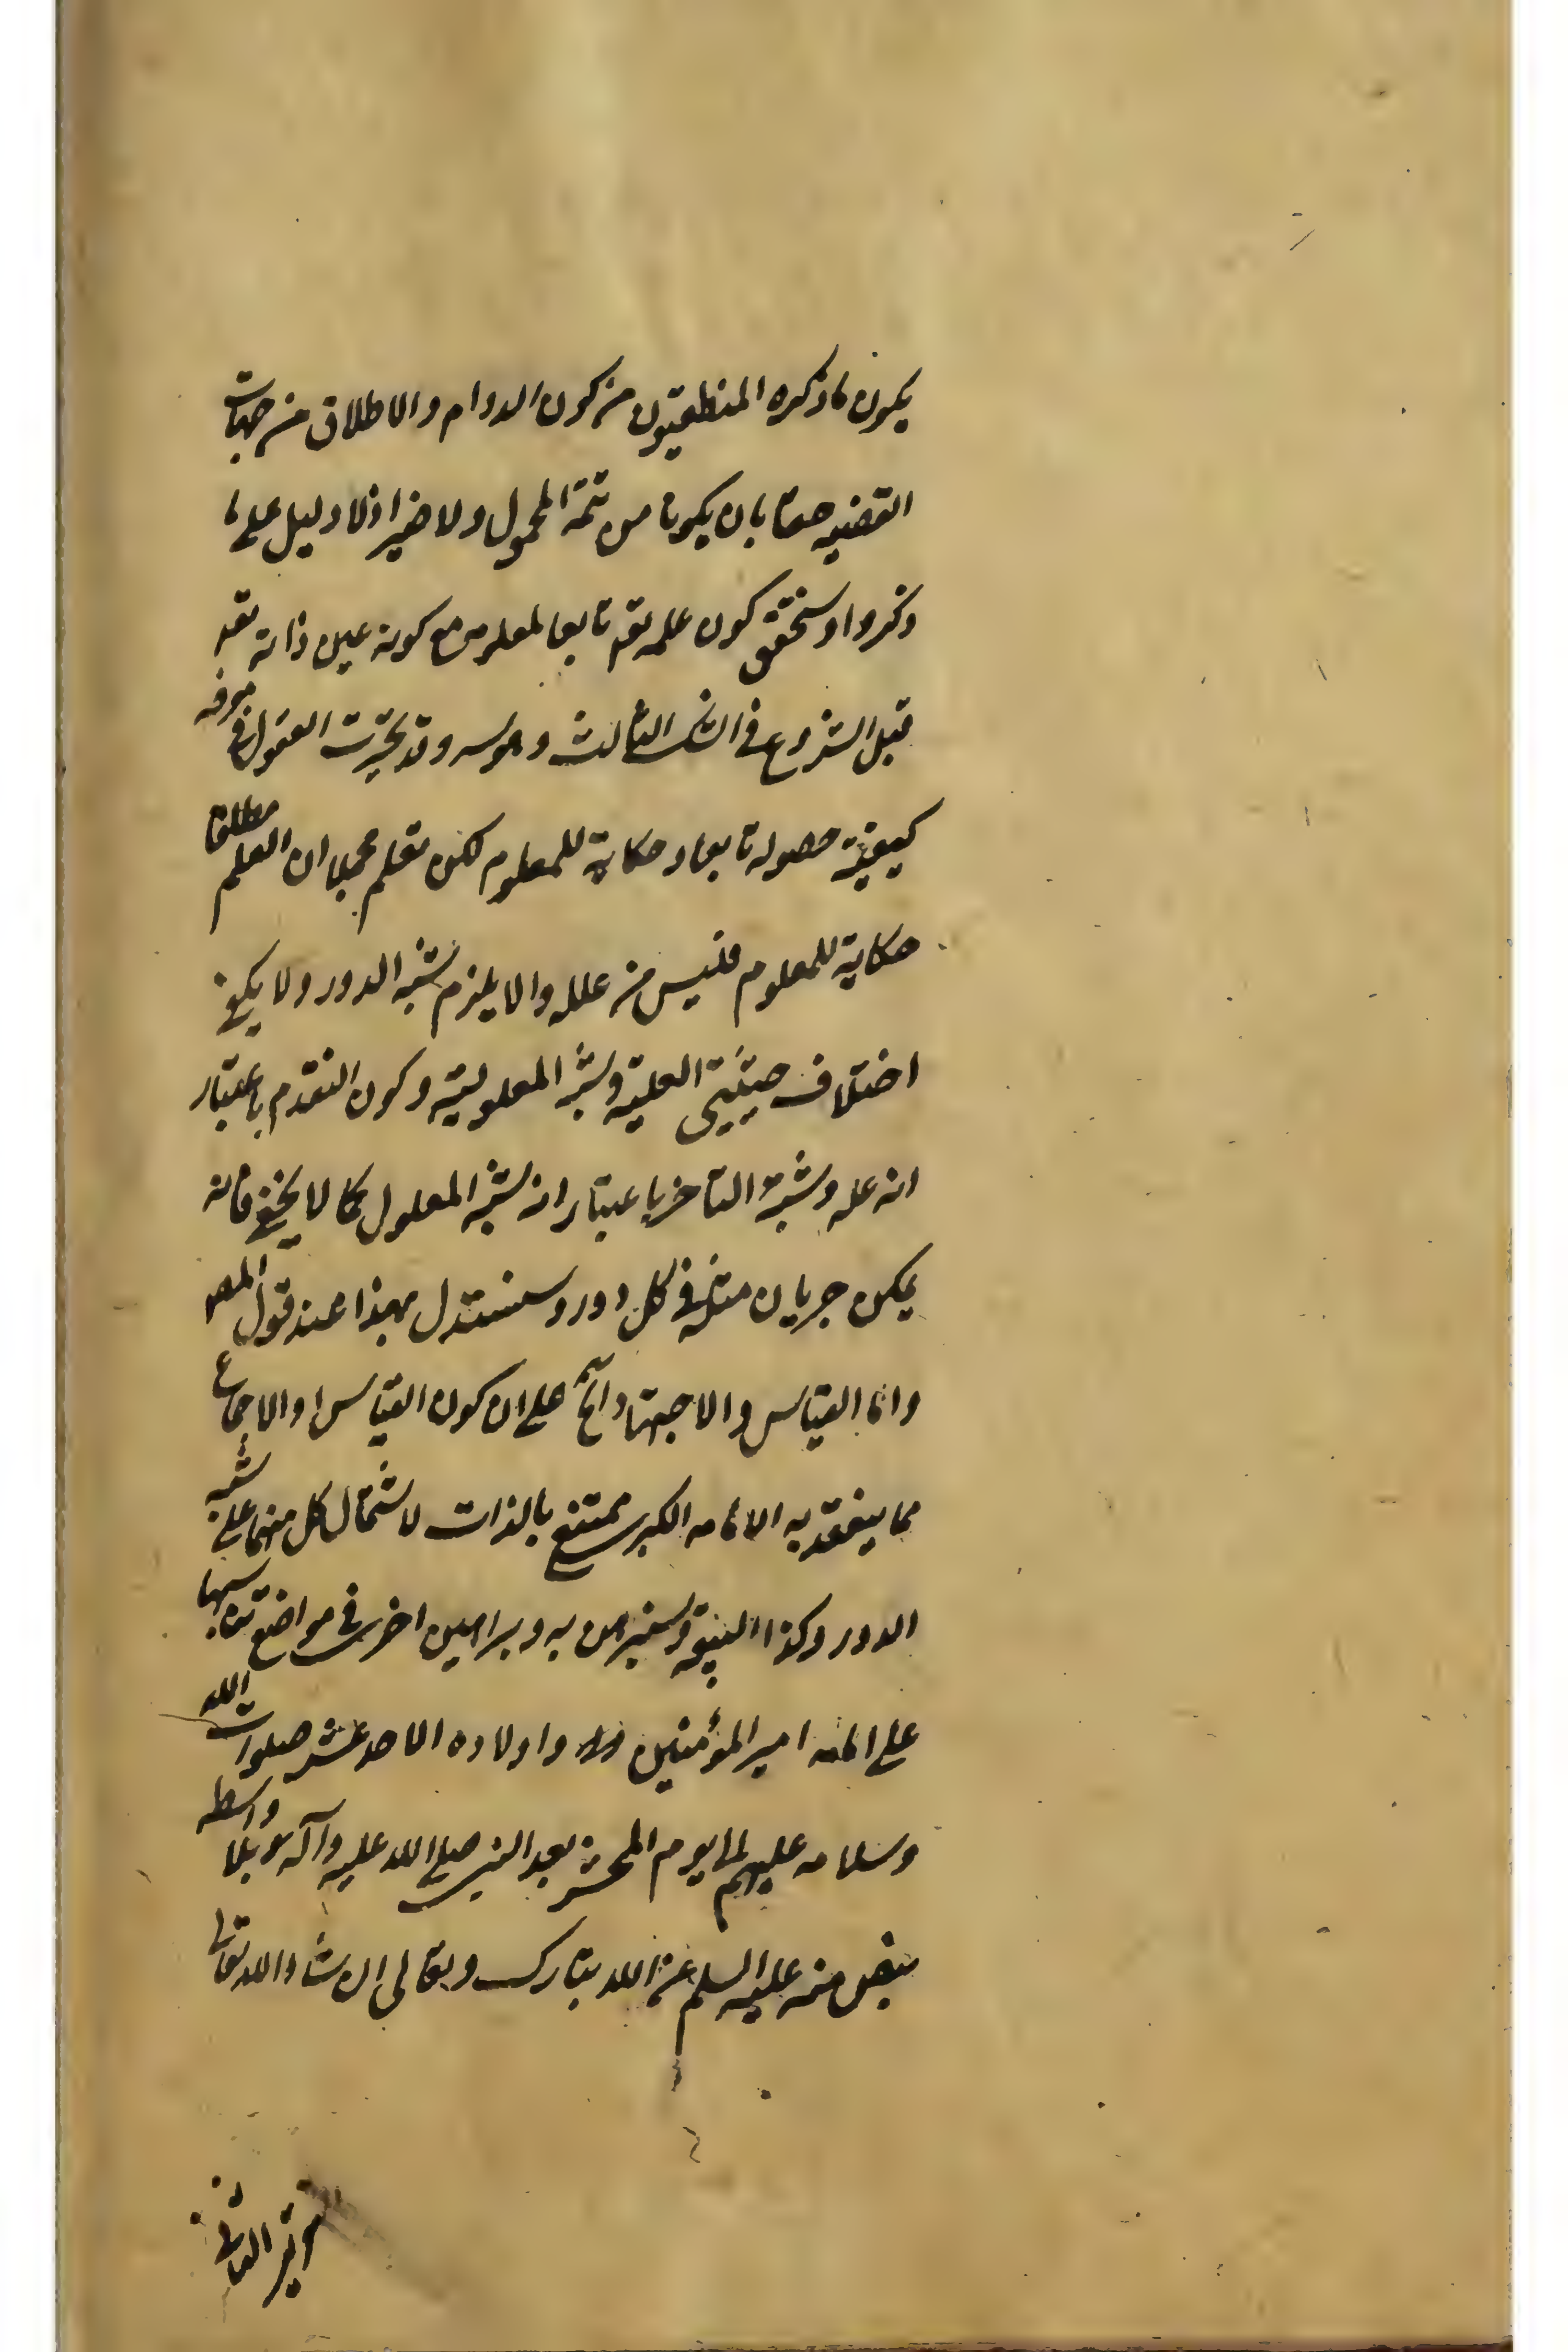 يكون ما ذكره المنطقيون من كون الدوام والاطلاق من جهات
القضيه حقا بان يكونا من تتمة المحمول ولا ضير اذ لا دليل على ما
ذكروا وسنحقق كون علمه تع تابعا لمعلومه مع كونه عين ذاته تعـ
قبل الشروع في الشك الثالث وقد تحيرت العقول في معرفه
كيفية حصوله تابعا وحكاية للمعلوم لكن نعلم مجملا ان العلم مطلقا
حكاية للمعلوم فليس من علله والا يلزم شبه الدور ولا يكفي
اختلاف حيثيتي العلية وشبه المعلولية وكون التقدم باعتبار
انه عله وشبه التأخر باعتبار انه شبه المعلول كما لا يخفى فانه
يمكن جريان مثله في كل دور وسنستدل بهذا عند قول المصـ
واما القياس والاجتهاد الخ على ان كون القياس او الاجماع
مما ينعقد به الامامه الكبرى ممتنع بالذات لاشتمال كل منهما على شبه
الدور وكذا البيعة وسنبرهن به وبراهين اخرى في مواضع تناسبها
على امامه امير المؤمنين واولاده الاحد عشر صلوات الله
وسلامه عليهم الى يوم المحشر بعد النبي صلى الله عليه وآله بلا واسطه
بنص منه عليه السلم عن الله تبارك وتعالى ان شاء الله تعالى